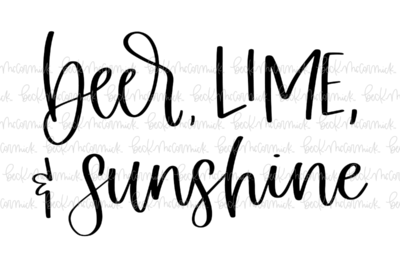 beer, LIME,
& sunshine